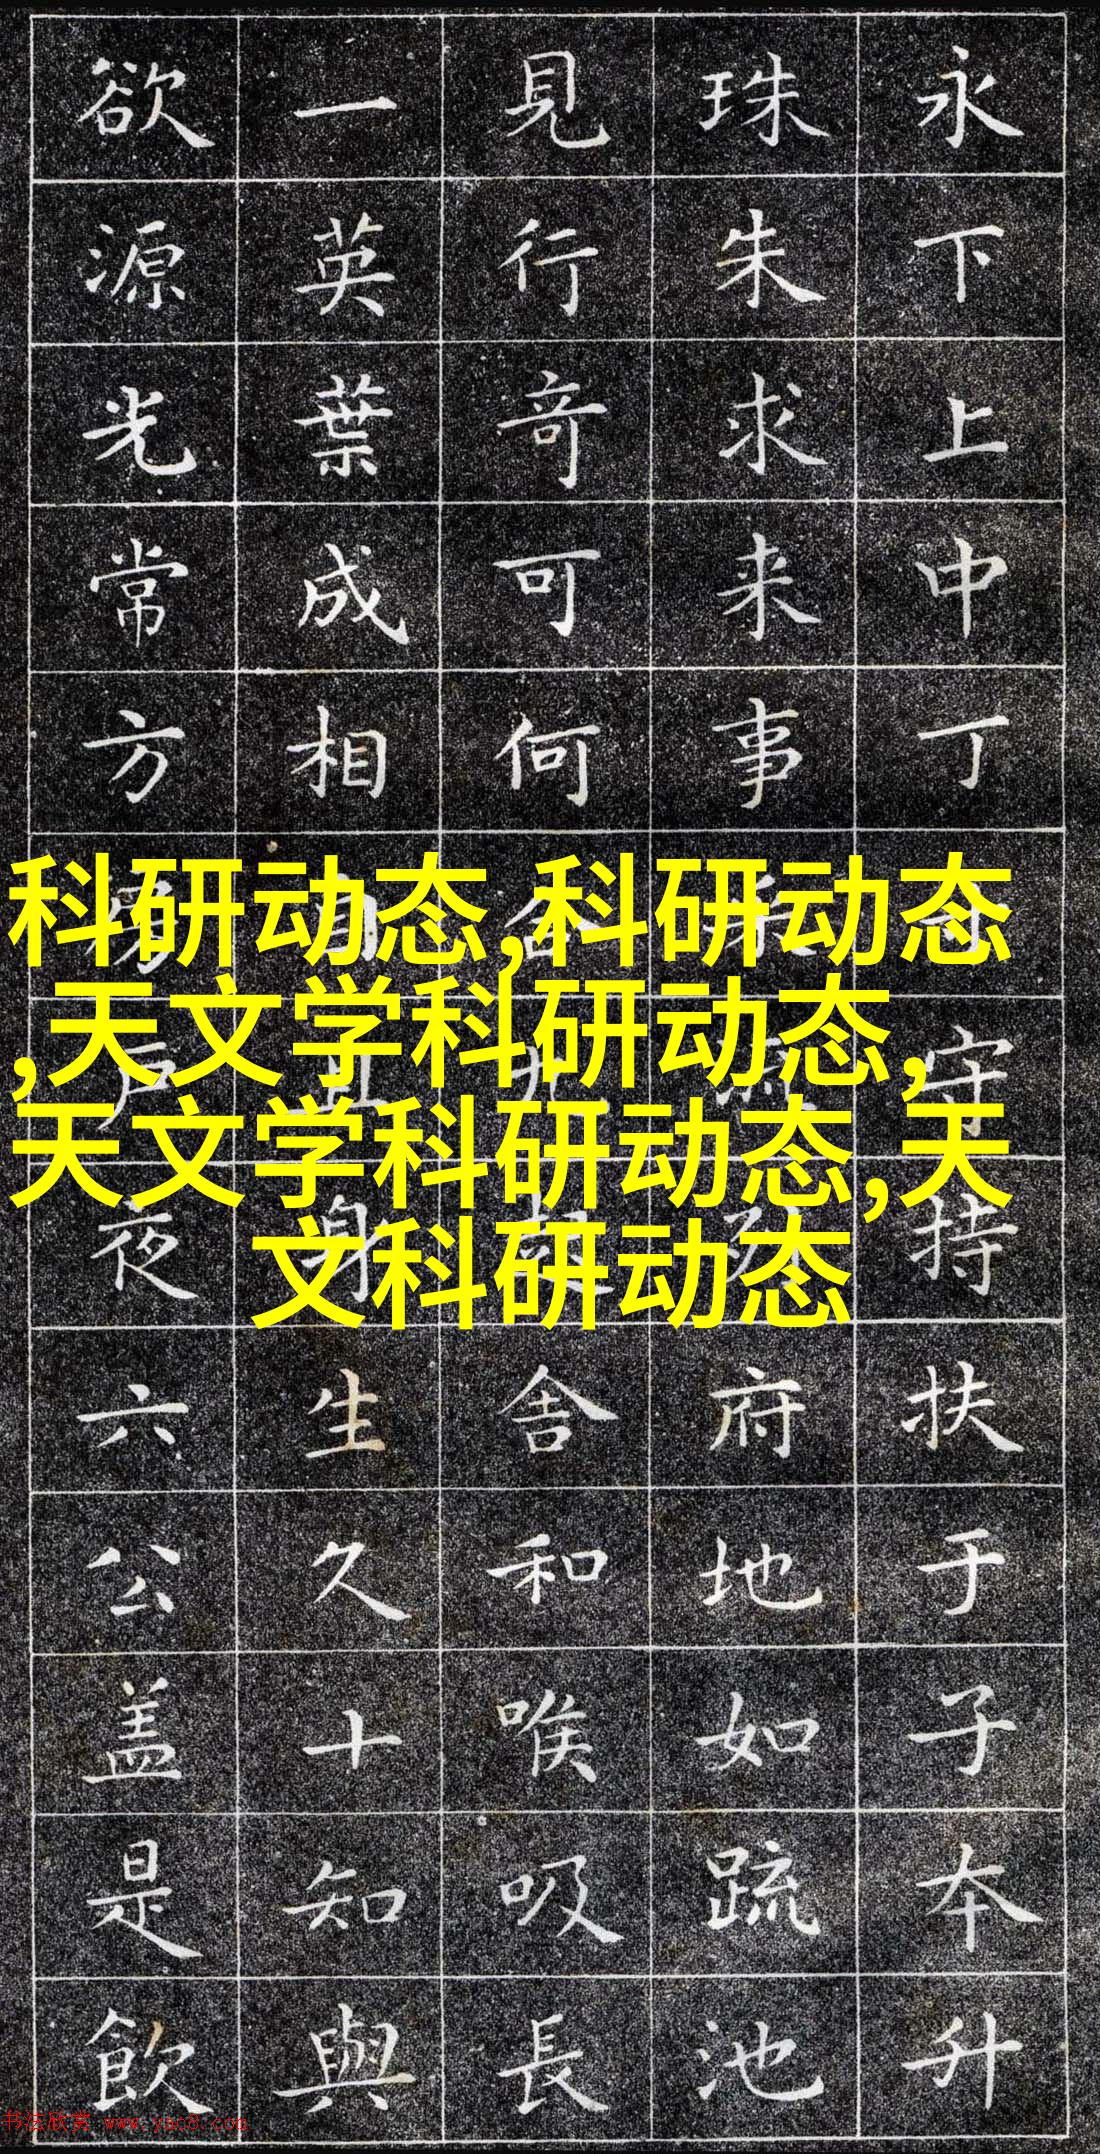 欲 一 見 珠 永
源 英 行 朱 下
光 葉 奇 求 上
常 成 可 来 中
方 相 何 事 丁
科研动态,科研动态
,天文学科研动态,
守
天文学科研动态,天
夜 身 持
文科研动态
六 生 舍 府 扶
公 久 和 地 于
盖 十 喉 如 子
是 知 吸 疏 本
飲 與 長 池 升
书法欣赏 www.yac8.com